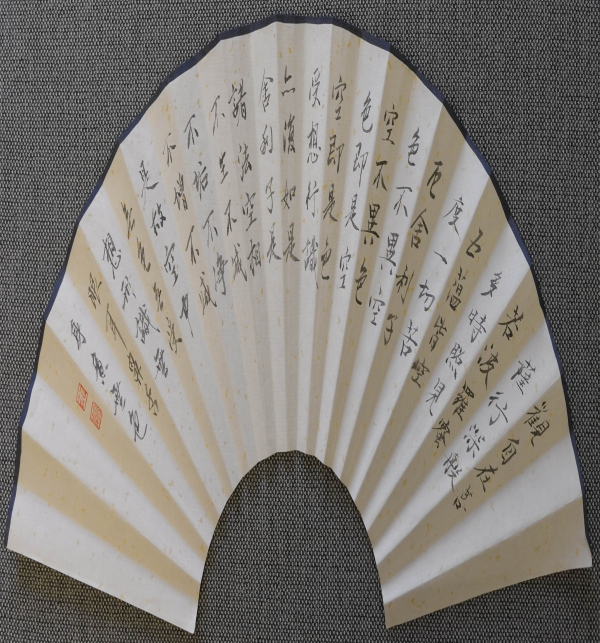 觀自在菩
薩行深般
若波羅蜜
多時照見
五蘊皆空
度一切苦
厄舍利子
色不異空
空不異色
色即是空
空即是色
受想行識
亦復如是
舍利子是
諸法空相
不生不滅
不垢不淨
不增不減
是故空中
無色無受
想行識無
眼耳鼻舌
身意無色